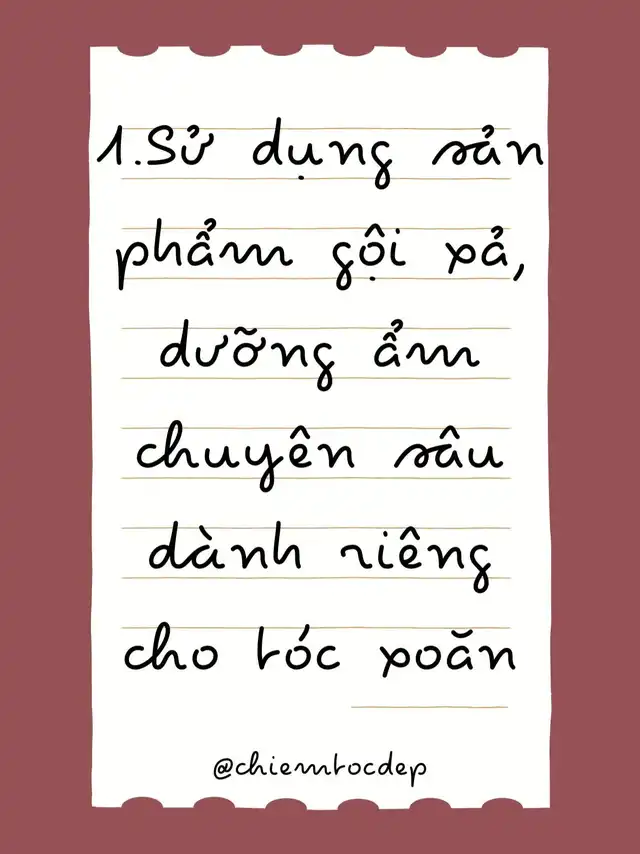 1.Sử dụng sản
phẩm gội xả,
dưỡng ẩm
chuyên sâu
dành riêng
cho tóc xoăn
@chiemtocdep